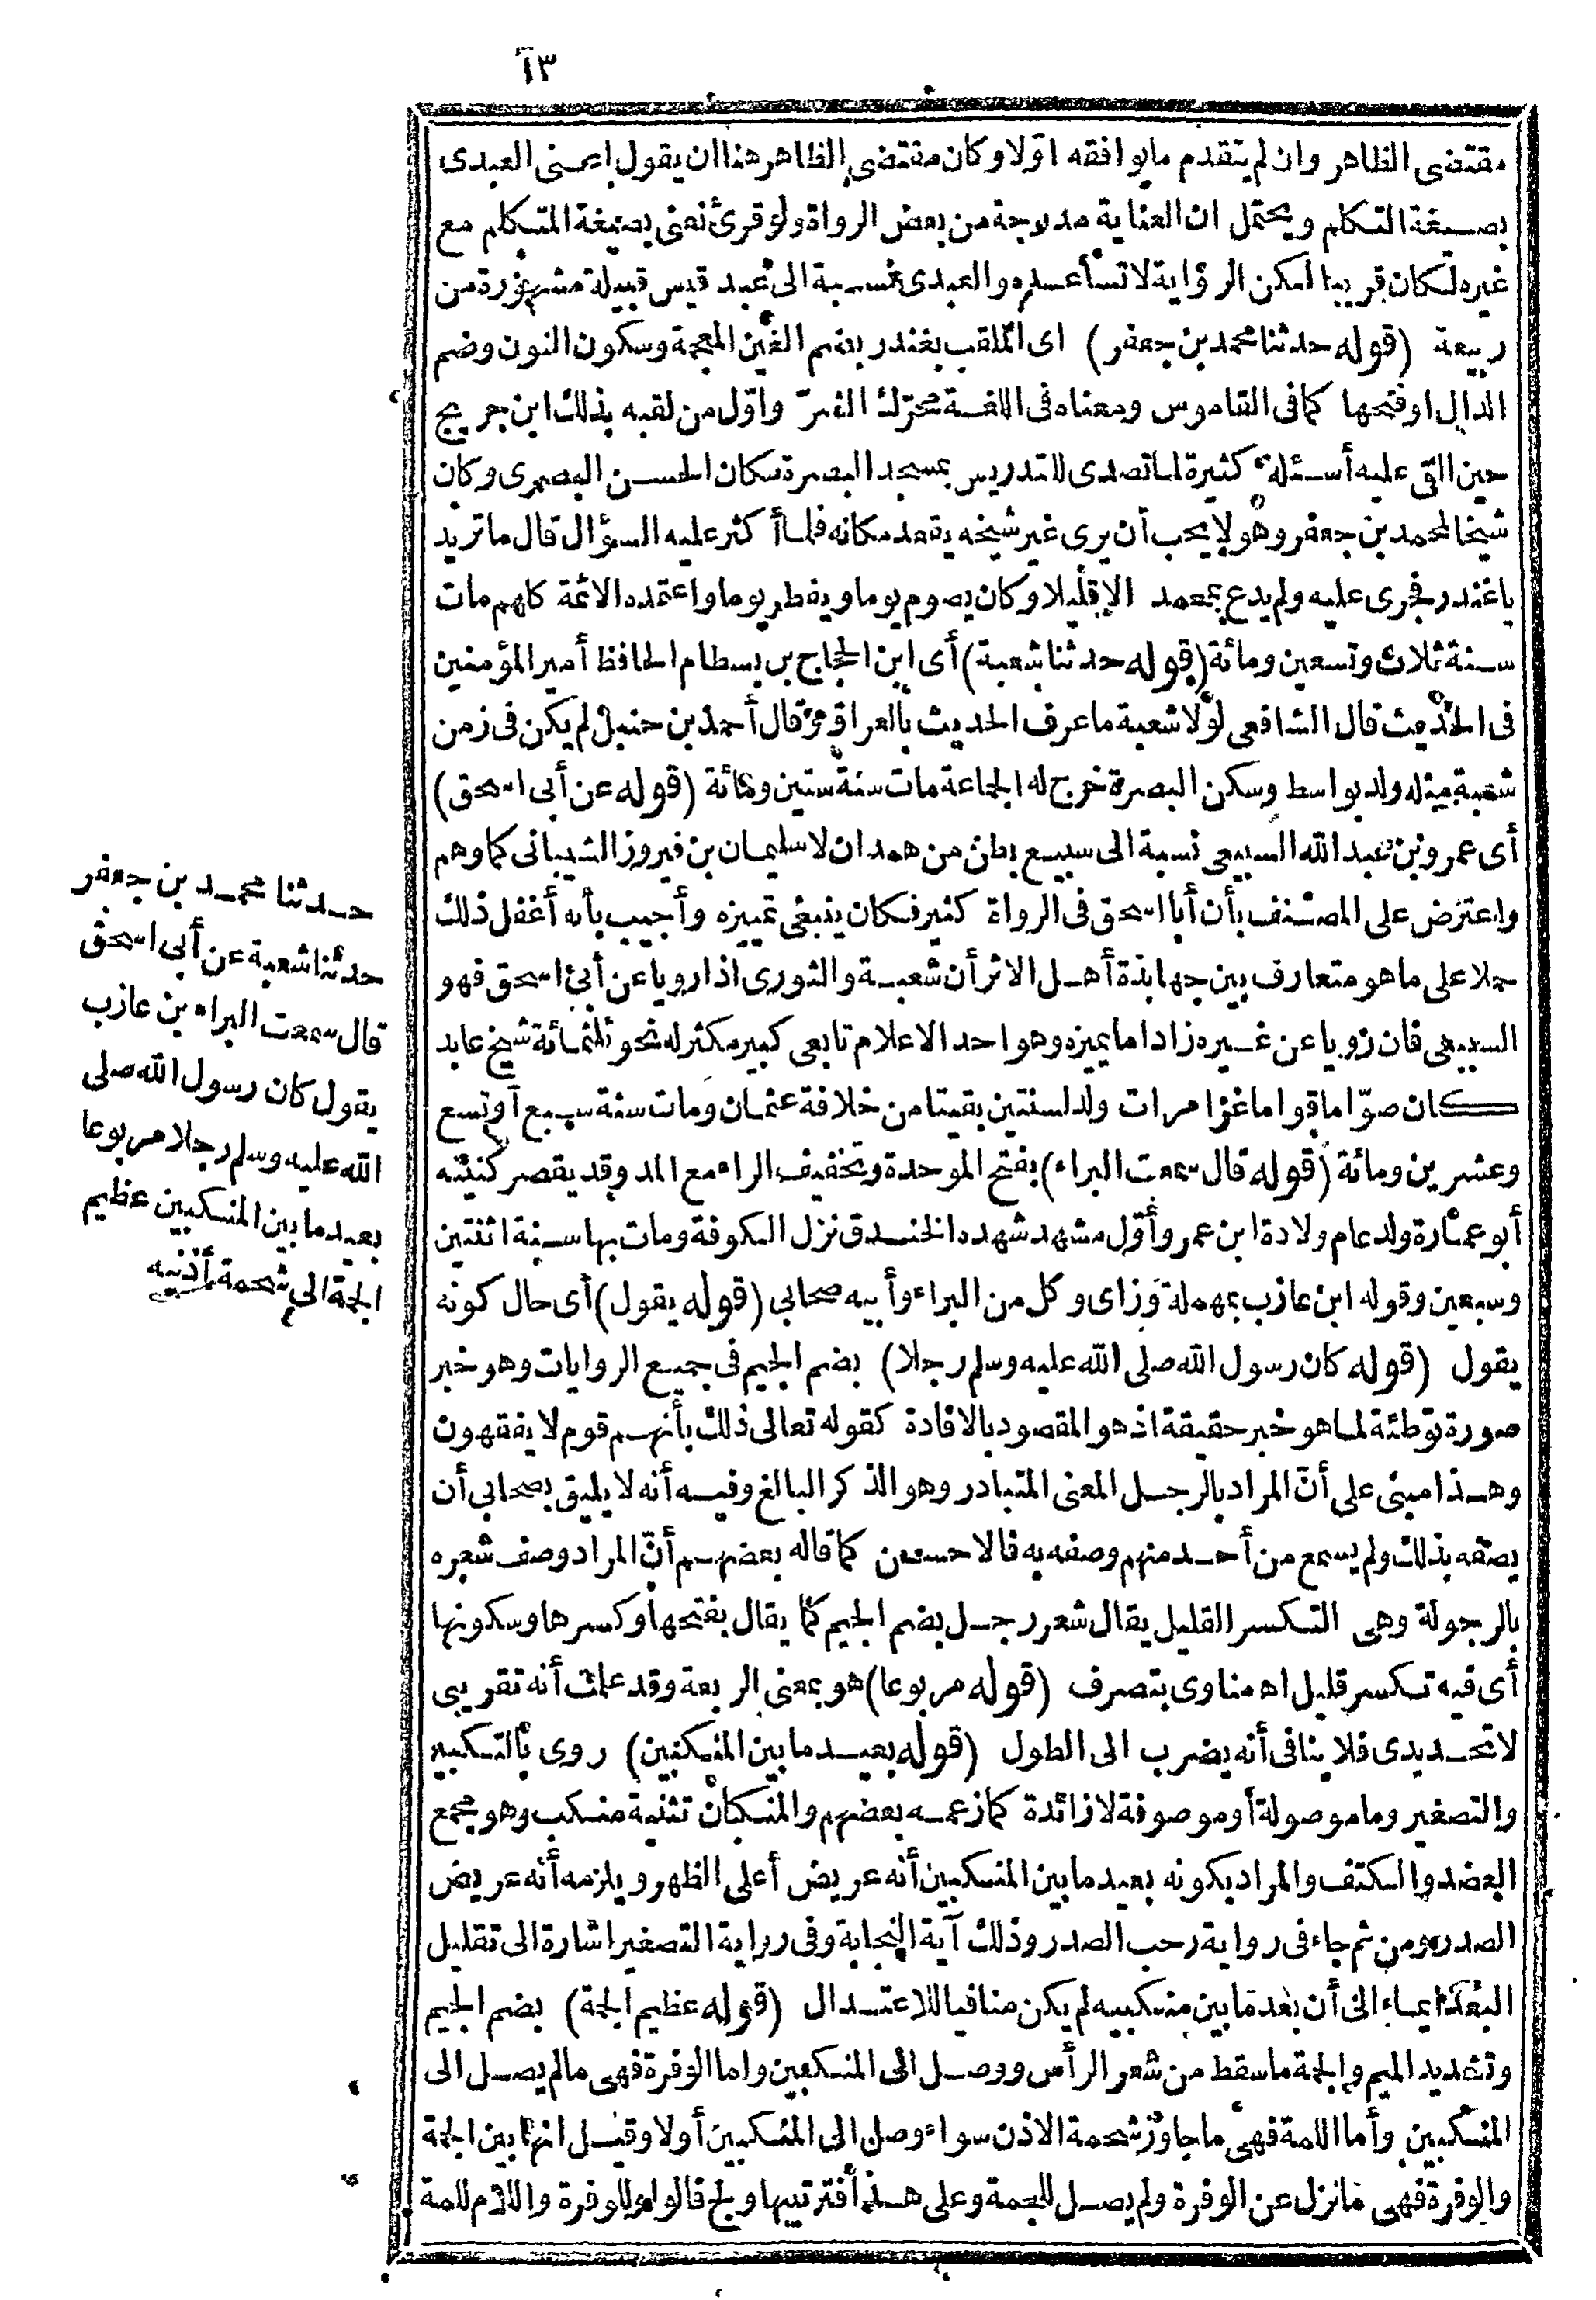 ١٣
مقتضى الظاهر وان لم يتقدم مايوافقه اوّلا وكان مقتضى الظاهر هنا ان يقول اعنى العبدى
بصيغة التكلم ويحتمل ان العناية مدرجة من بعض الرواة ولو قرئ نعنى بصيغة المتكلم مع
غيره لكان قريبا لكن الرواية لا تساعده والعبدى نسبة الى عبد قيس قبيلة مشهورة من
ربيعة (قوله حدثنا محمد بن جعفر) اى الملقب بغندر بضم الغين المعجمة وسكون النون وضم
الدال او فتحها كما فى القاموس ومعناه فى اللغة محرّك الشرّ واوّل من لقبه بذلك ابن جريج
حين القى عليه أسئلة كثيرة لما تصدى للتدريس بمسجد البصرة مكان الحسن البصرى وكان
شيخا لمحمد بن جعفر وهو لا يحب أن يرى غير شيخه يقعد مكانه فلما أكثر عليه السؤال قال ما تريد
ياغندر فجرى عليه ولم يدع بمحمد الا قليلا وكان يصوم يوما ويفطر يوما واعتمده الائمة كلهم مات
سنة ثلاث وتسعين ومائة (قوله حدثنا شعبة) أى ابن الحجاج بن بسطام الحافظ أمير المؤمنين
فى الحديث قال الشافعى لولا شعبة ما عرف الحديث بالعراق وقال أحمد بن حنبل لم يكن فى زمن
شعبة مثله ولد بواسط وسكن البصرة خرج له الجماعة مات سنة ستين ومائة (قوله عن أبى اسحق)
أى عمرو بن عبد الله السبيعى نسبة الى سبيع بطن من همدان لا سليمان بن فيروز الشيبانى كما وهم
واعترض على المصنف بأن أبا اسحق فى الرواة كثير فكان ينبغى تمييزه وأجيب بأنه أغفل ذلك
حملا على ما هو متعارف بين جهابذة أهل الاثر أن شعبة والثورى اذا رويا عن أبى اسحق فهو
السبيعى فان رويا عن غيره زادا ما يميزه وهو احد الاعلام تابعى كبير مكثر له نحو ثلثمائة شيخ عابد
كان صوّاما قواما غزا مرات ولد لسنتين بقيتا من خلافة عثمان ومات سنة سبع أوتسع
وعشرين ومائة (قوله قال سمعت البراء) بفتح الموحدة وتخفيف الراء مع المد وقد يقصر كنيته
أبو عمارة ولد عام ولادة ابن عمر وأوّل مشهد شهده الخندق نزل الكوفة ومات بها سنة اثنتين
وسبعين وقوله ابن عازب بمهملة وزاى وكل من البراء وأبيه صحابى (قوله يقول) أى حال كونه
يقول (قوله كان رسول الله صلى الله عليه وسلم رجلا) بضم الجيم فى جميع الروايات وهو خبر
صورة توطئة لما هو خبر حقيقة اذ هو المقصود بالافادة كقوله تعالى ذلك بأنهم قوم لا يفقهون
وهذا مبنى على أنّ المراد بالرجل المعنى المتبادر وهو الذكر البالغ وفيه أنه لا يليق بصحابى أن
يصفه بذلك ولم يسمع من أحد منهم وصفه به فالاحسن كما قاله بعضهم أنّ المراد وصف شعره
بالرجولة وهى التكسر القليل يقال شعر رجل بضم الجيم كما يقال بفتحها وكسرها وسكونها
أى فيه تكسر قليل اه مناوى بتصرف (قوله مربوعا) هو بمعنى الربعة وقد علمت أنه تقريبى
لا تحديدى فلا ينافى أنه يضرب الى الطول (قوله بعيد ما بين المنكبين) روى بالتكبير
والتصغير وما موصولة أو موصوفة لا زائدة كما زعمه بعضهم والمنكبان تثنية منكب وهو مجمع
العضد والكتف والمراد بكونه بعيد ما بين المنكبين أنه عريض أعلى الظهر ويلزمه أنه عريض
الصدر ومن ثم جاء فى رواية رحب الصدر وذلك آية النجابة وفى رواية التصغير اشارة الى تقليل
البعد ايماء الى أن بعد ما بين منكبيه لم يكن منافيا للاعتدال (قوله عظيم الجمة) بضم الجيم
وتشديد الميم والجمة ما سقط من شعر الرأس ووصل الى المنكبين واما الوفرة فهى مالم يصل الى
المنكبين وأما اللمة فهى ما جاوز شحمة الاذن سواء وصل الى المنكبين أولا وقيل انها بين الجمة
والوفرة فهى ما نزل عن الوفرة ولم يصل للجمة وعلى هذا فترتيبها ولج فالواو للوفرة واللام للمة
حدثنا محمد بن جعفر
حدثنا شعبة عن أبى اسحق
قال سمعت البراء بن عازب
يقول كان رسول الله صلى
الله عليه وسلم رجلا مربوعا
بعيد ما بين المنكبين عظيم
الجمة الى شحمة أذنيه